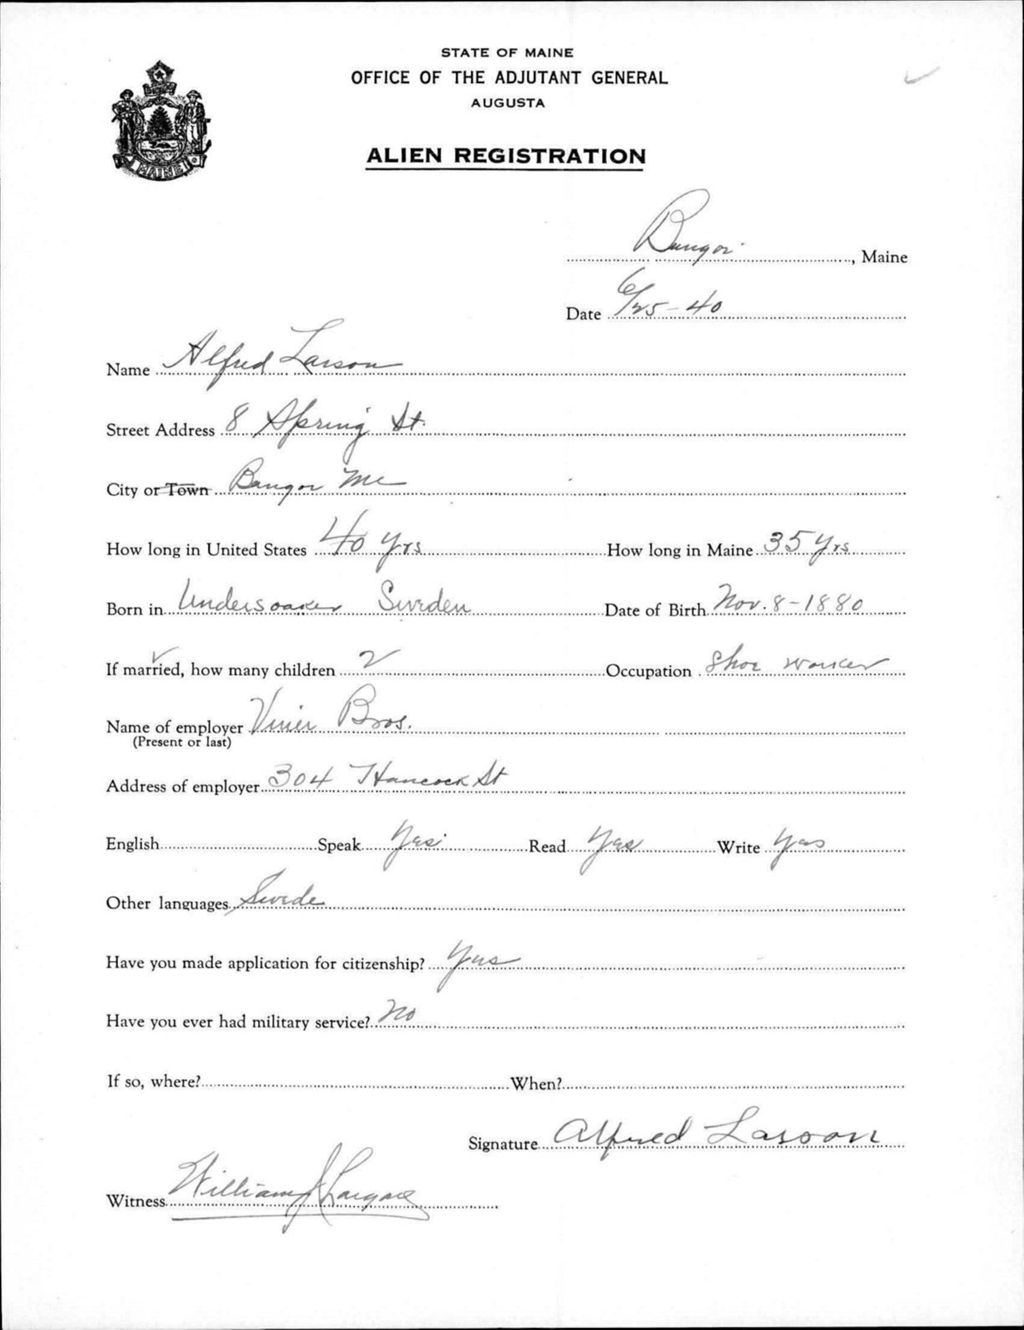 STATE OF MAINE
OFFICE OF THE ADJUTANT GENERAL
AUGUSTA
ALIEN REGISTRATION
MAINE
Bangor, Maine
Date 6/25-40
Name Alfred Larson
Street Address 8 Spring St.
City or Town Bangor Me
How long in United States 40 yrs How long in Maine 35 yrs
Born in Sweden Date of Birth Nov. 8-1880
If married, how many children 2 Occupation Shoe worker
Name of employer Viner Bros.
(Present or last)
Address of employer 304 Hancock St
English Speak Yes Read Yes Write Yes
Other languages Swede
Have you made application for citizenship? Yes
Have you ever had military service? No
If so, where? When?
Signature Alfred Larson
Witness William J